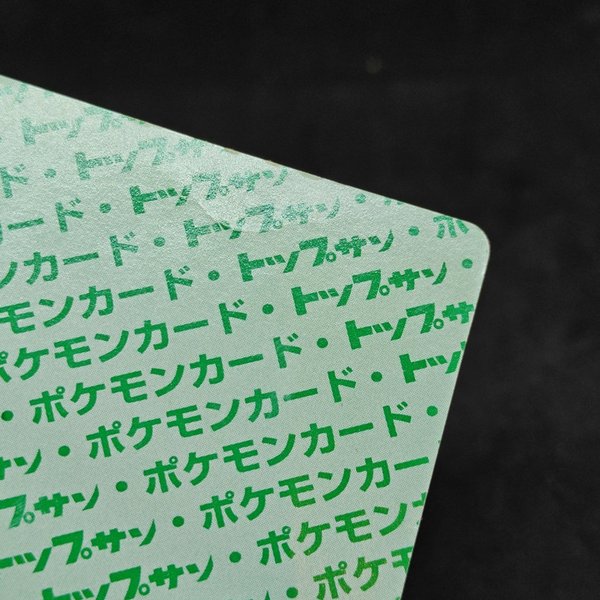 トップサン
ド・トップサン
ード・トップサン
ンカード・トップサン・
モンカード・トップサン・ポ
ポケモンカード・トップサン・
・ポケモンカード・トップサ
サン・ポケモンカード・トッ
プサン・ポケモンカード・
トップサン・ポケモンカー
トップサン・ポケモン
・ポケ